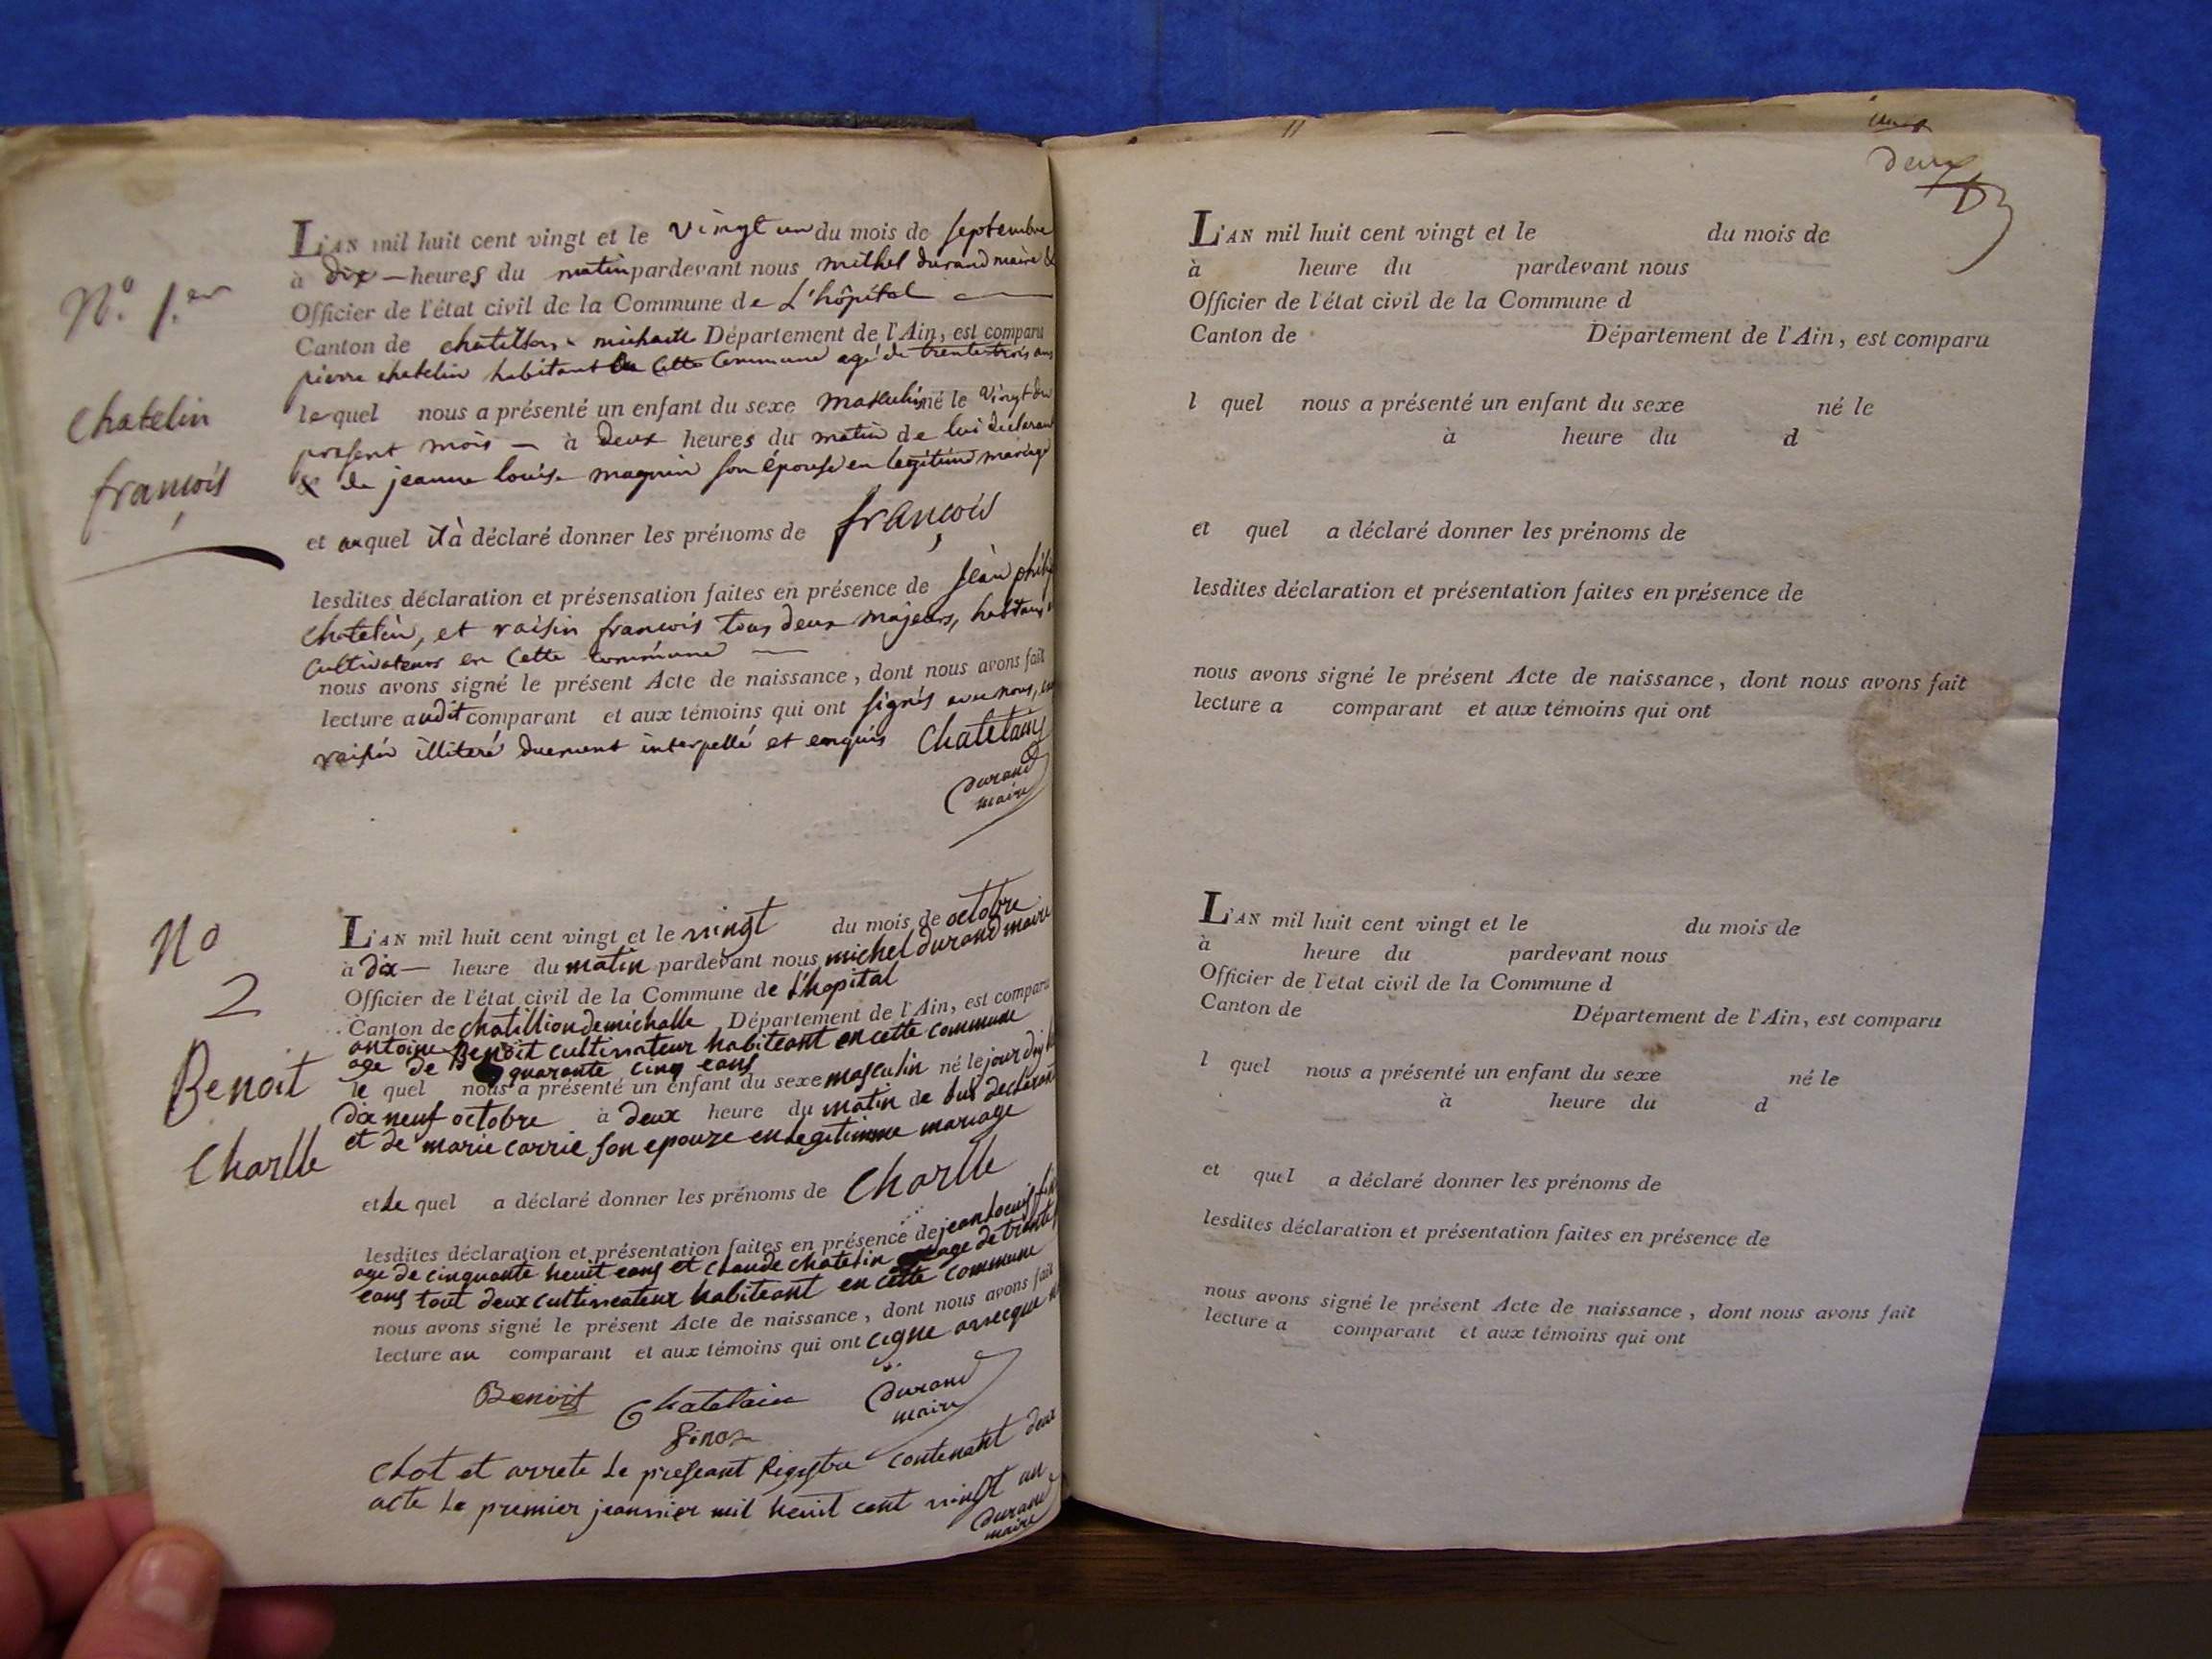 N.o 1.er
chatelin
françois
L'AN mil huit cent vingt et le vingt un du mois de septembre
à dix — heures du matin pardevant nous mithel durand maire &
Officier de l'état civil de la Commune de L'hôpital
Canton de chatillon michaille Département de l'Ain, est comparu
pierre chatelin habitant cette commune agé de trente trois ans
lequel nous a présenté un enfant du sexe masculin né le vingt du
present mois — à deux heures du matin de lui déclarant
& de jeanne louise magnin son épouse en legitime mariage
et auquel il à déclaré donner les prénoms de françois
lesdites déclaration et présensation faites en présence de jean
chatelin, et raisin francois tous deux majeurs,
cultivateurs en cette commune
nous avons signé le présent Acte de naissance, dont nous avons fait
lecture audit comparant et aux témoins qui ont signés avec nous,
raisin illiteré duement interpellé et enquis chatelain
durand
maire
No
2
Benoit
Charlle
L'AN mil huit cent vingt et le vingt du mois de octobre
à dix — heure du matin pardevant nous michel durand maire
Officier de l'état civil de la Commune de L'hopital
Canton de chatilliondemichalle Département de l'Ain, est comparu
antoine Benoit cultivateur habiteant en cette commune
age de quarante cinq eans
le quel nous a présenté un enfant du sexe masculin né le jour
dix neuf octobre à deux heure du matin de lui declarant
et de marie carrie son epouze en legitimme mariage
et le quel a déclaré donner les prénoms de Charlle
lesdites déclaration et présentation faites en présence de jean Louis
age de cinquante heuit eans et claude chatelin age de trante
eans tout deux cultiveateur habiteant en cette commune
nous avons signé le présent Acte de naissance, dont nous avons fait
lecture au comparant et aux témoins qui ont cigne avecque
Benoit Chatelain durand
maire
clot et arrete le preseant Registre contenant deux
acte le premier jeanvier mil heuit cent vingt un
durand
maire
deux
L'AN mil huit cent vingt et le du mois de
à heure du pardevant nous
Officier de l'état civil de la Commune d
Canton de Département de l'Ain, est comparu
l quel nous a présenté un enfant du sexe né le
à heure du d
et quel a déclaré donner les prénoms de
lesdites déclaration et présentation faites en présence de
nous avons signé le présent Acte de naissance, dont nous avons fait
lecture a comparant et aux témoins qui ont
L'AN mil huit cent vingt et le du mois de
à heure du pardevant nous
Officier de l'état civil de la Commune d
Canton de Département de l'Ain, est comparu
l quel nous a présenté un enfant du sexe né le
à heure du d
et quel a déclaré donner les prénoms de
lesdites déclaration et présentation faites en présence de
nous avons signé le présent Acte de naissance, dont nous avons fait
lecture a comparant et aux témoins qui ont